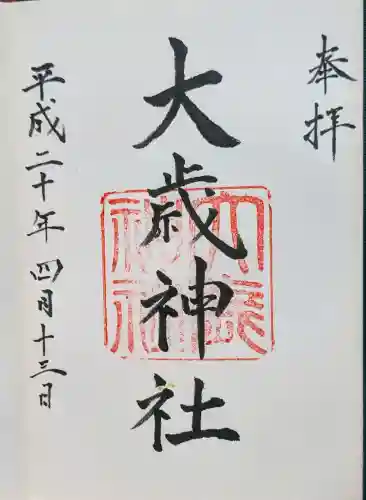 奉拝
大歳神社
平成二十年四月十三日